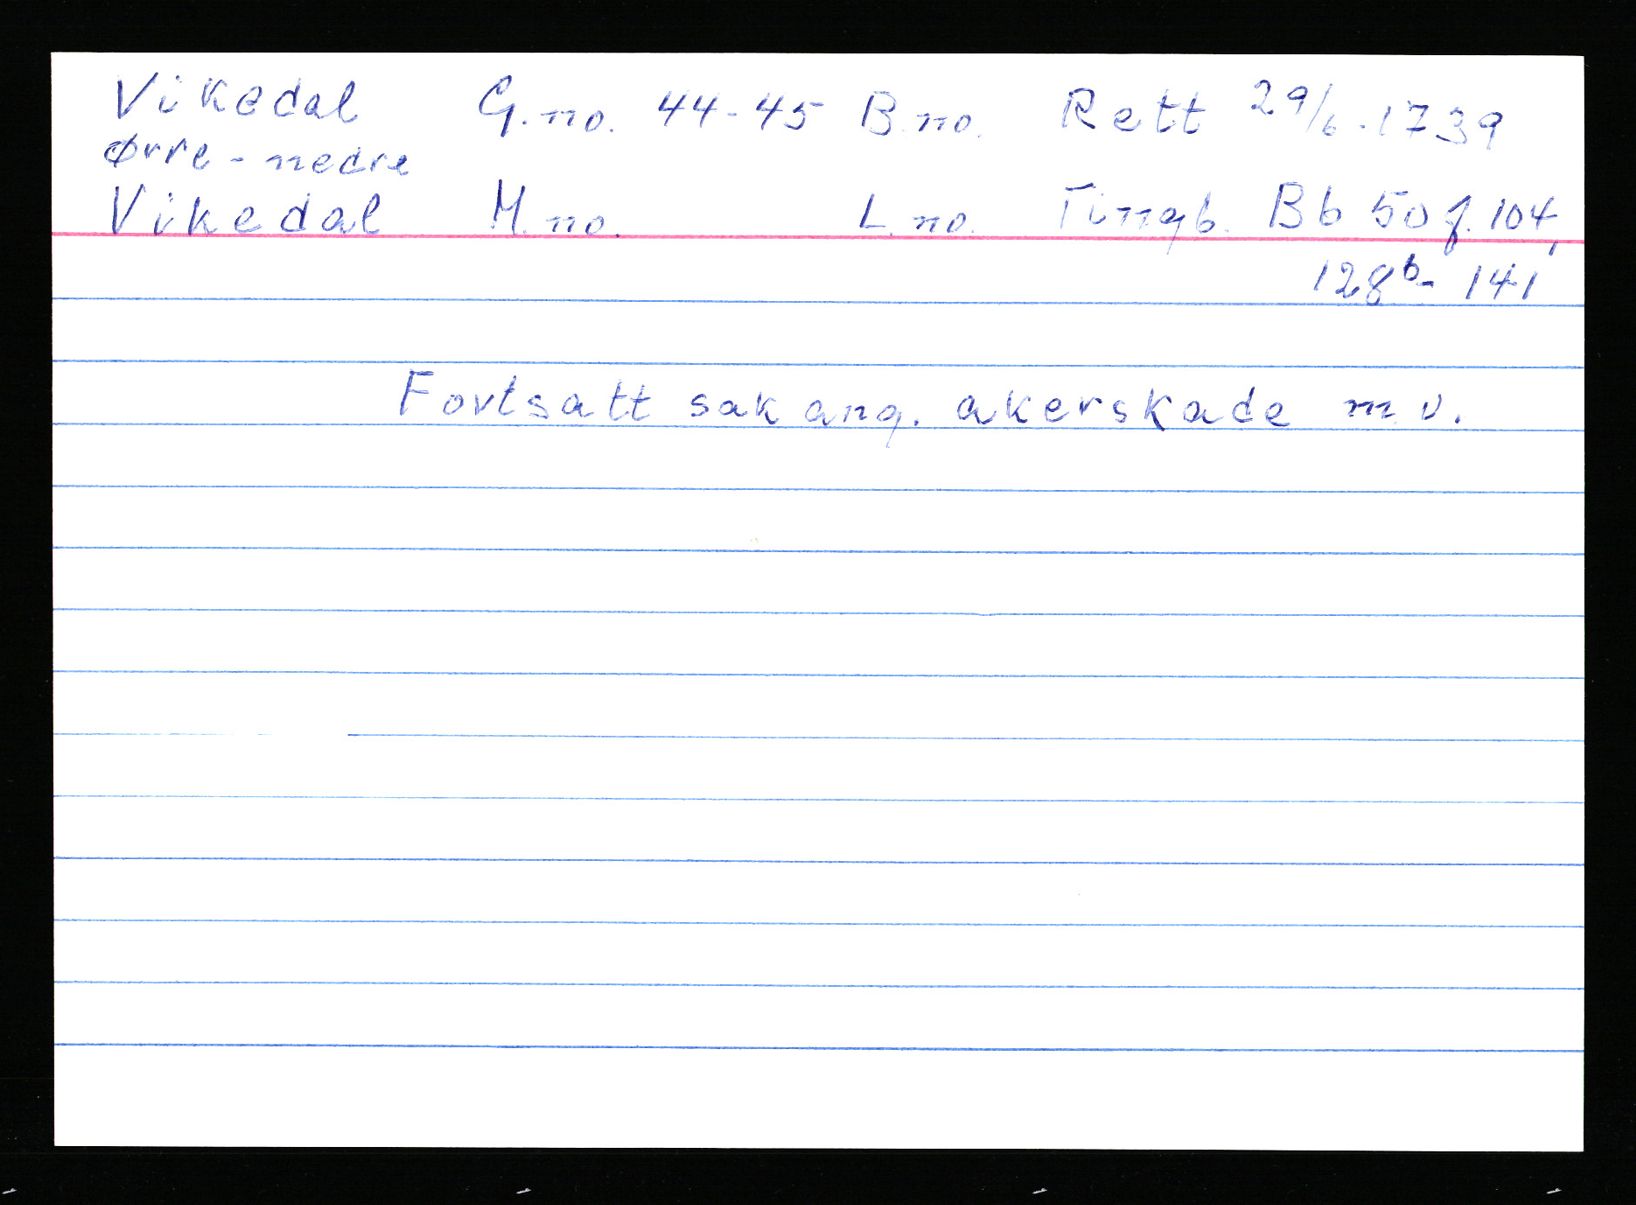 Vikedal G.no. 44-45 B.no. Rett 29/6.1739
Øvre - nedre
Vikedal M.no. L.no. Tingb. Bb 50 f. 104,
128b - 141
Fortsatt sak ang. akerskade m.v.